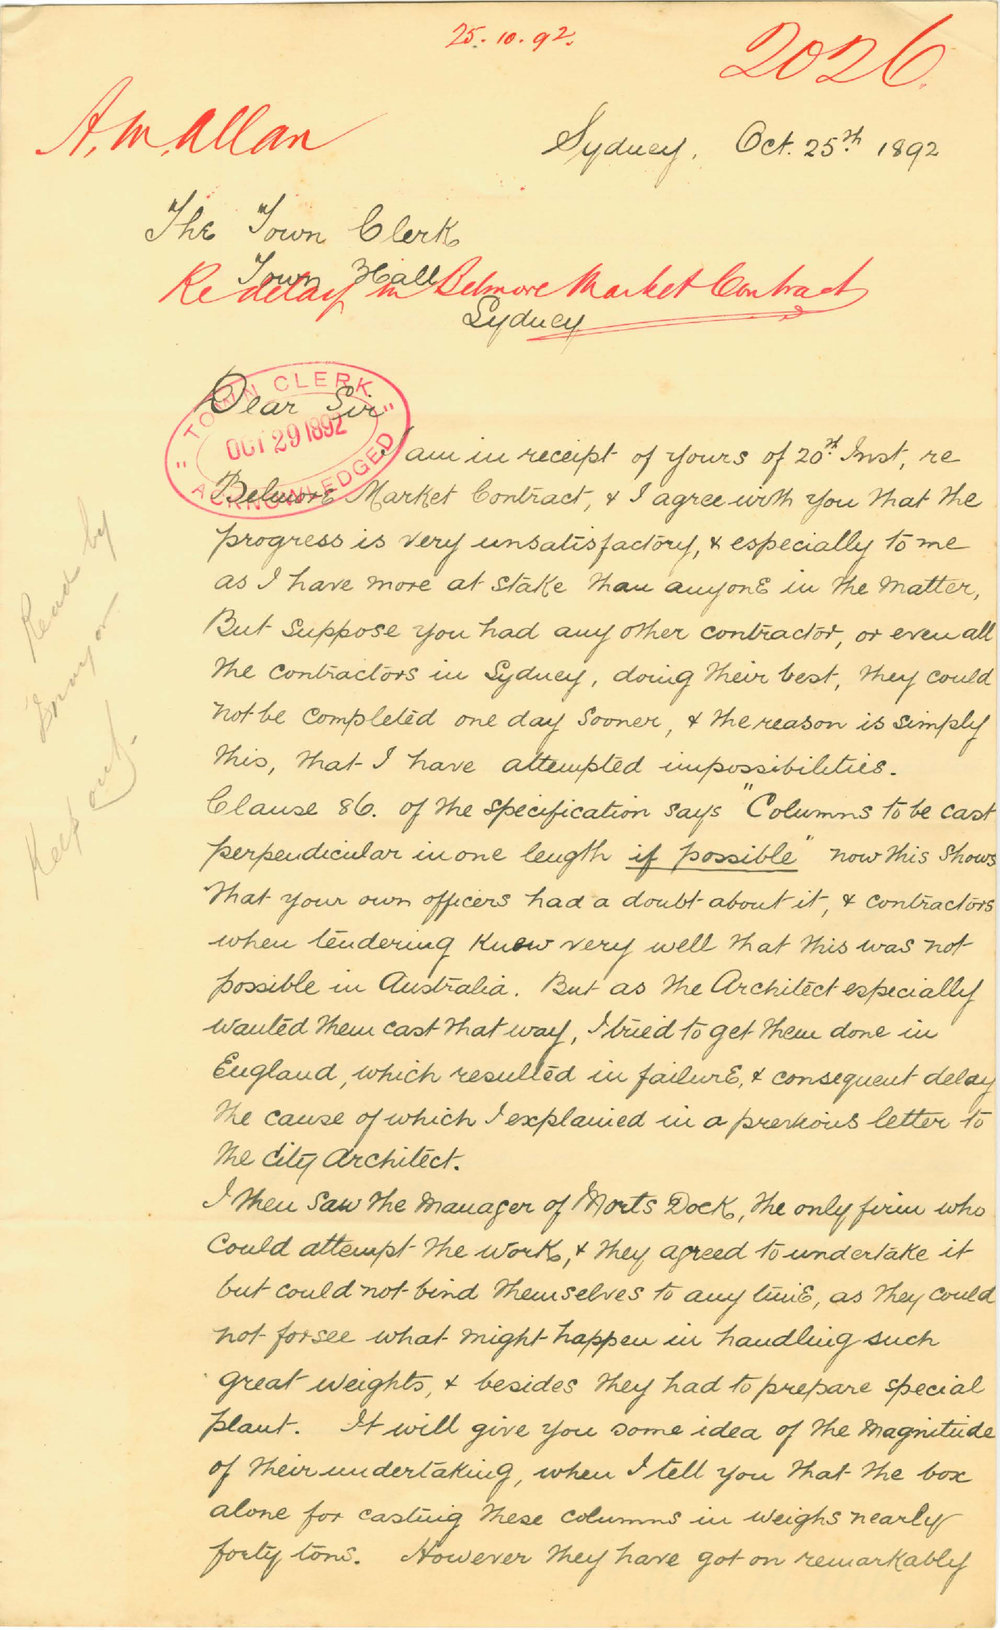 25.10.92.
2026.
A. M. Allan
Sydney, Oct. 25th. 1892
The Town Clerk
Town Hall
Re delay in Belmore Market Contract
Sydney
"TOWN CLERK"
OCT 29 1892
ACKNOWLEDGED
Dear Sir
I am in receipt of yours of 20th Inst, re
Belmore Market Contract, & I agree with you that the
progress is very unsatisfactory, & especially to me
as I have more at stake than anyone in the matter,
But suppose you had any other contractor, or even all
the contractors in Sydney, doing their best, they could
not be completed one day sooner, & the reason is simply
this, that I have attempted impossibilities.
Clause 86. of the specification says "Columns to be cast
perpendicular in one length if possible" now this shows
that your own officers had a doubt about it, & contractors
when tendering knew very well that this was not
possible in Australia. But as the Architect especially
wanted them cast that way, I tried to get them done in
England, which resulted in failure, & consequent delay
the cause of which I explained in a previous letter to
the City Architect.
I then saw the manager of Morts Dock, the only firm who
could attempt the work, & they agreed to undertake it
but could not bind themselves to any time, as they could
not forsee what might happen in handling such
great weights, & besides they had to prepare special
plant. It will give you some idea of the magnitude
of their undertaking, when I tell you that the box
alone for casting these columns in weighs nearly
forty tons. However they have got on remarkably
Read by
Mayor
Keep out.